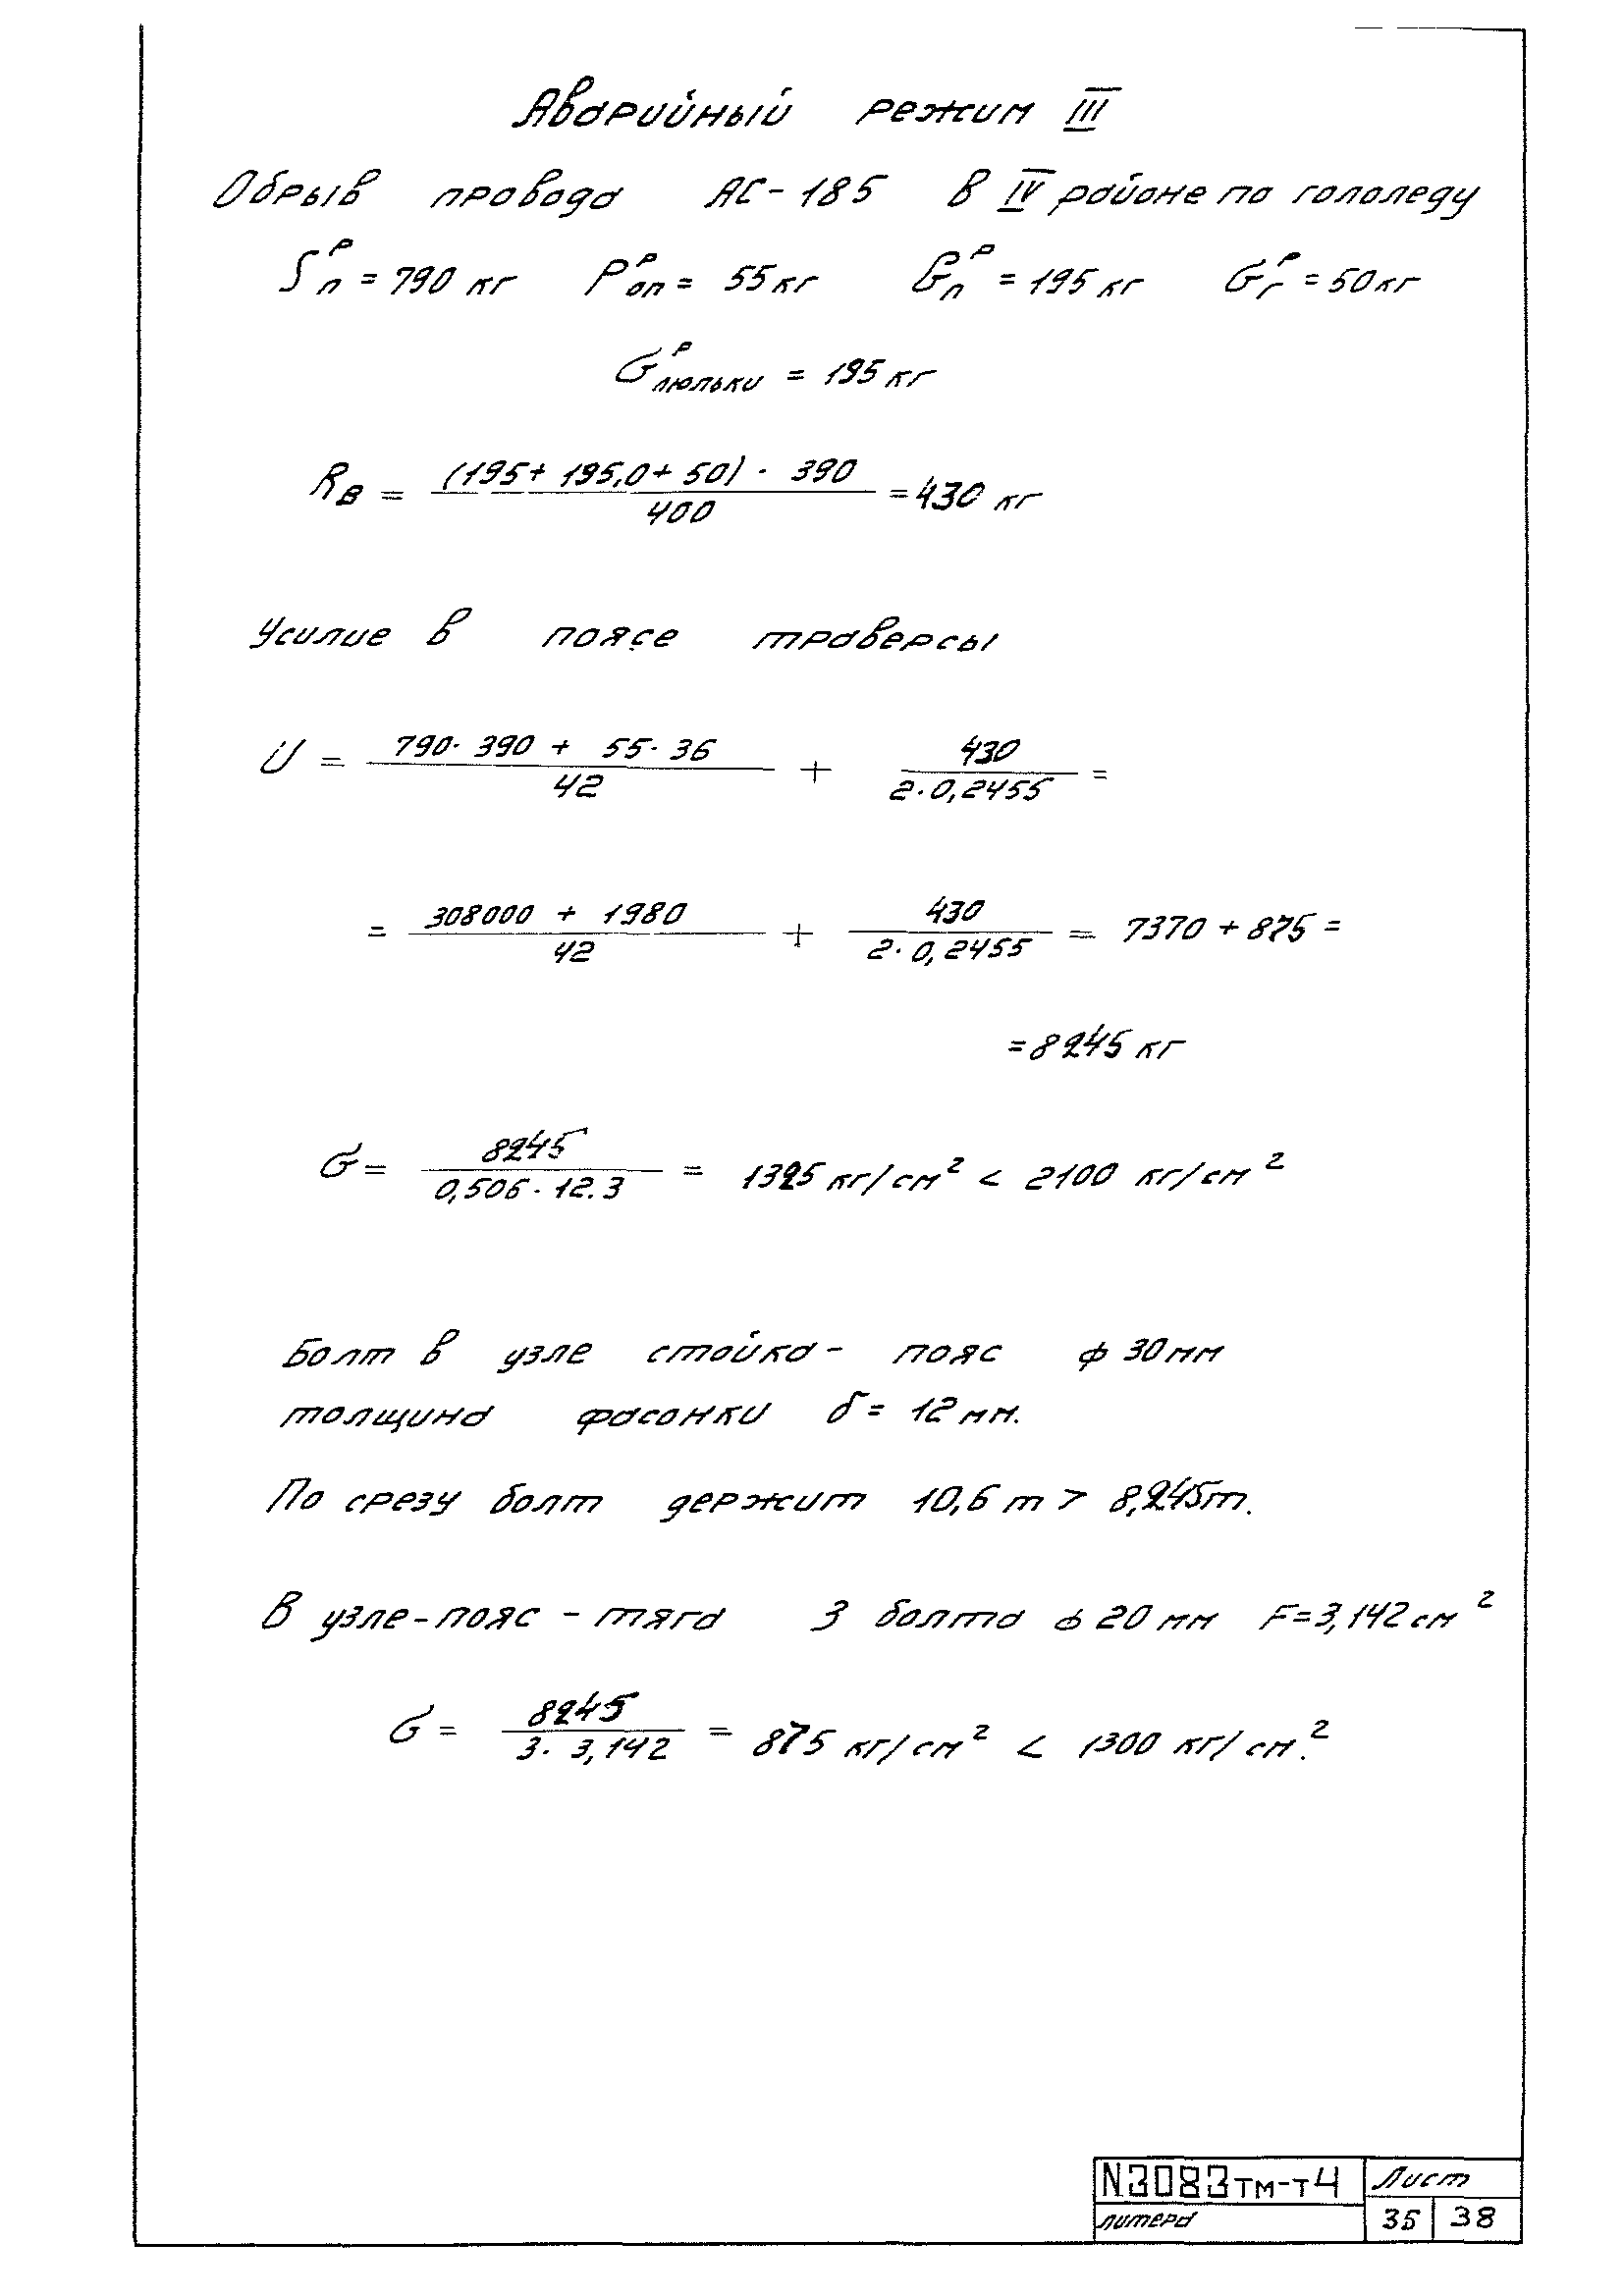 Аварийный режим III
Обрыв провода АС-185 в IV районе по гололеду
Sпᵖ = 790 кг Pопᵖ = 55 кг Gпᵖ = 195 кг Gгᵖ = 50 кг
Gлюлькиᵖ = 195 кг
RВ = (195 + 195,0 + 50) · 390 / 400 = 430 кг
Усилие в поясе траверсы
U = 790 · 390 + 55 · 36 / 42 + 430 / 2 · 0,2455 =
= 308000 + 1980 / 42 + 430 / 2 · 0,2455 = 7370 + 875 =
= 8245 кг
σ = 8245 / 0,506 · 12.3 = 1325 кг/см² < 2100 кг/см²
Болт в узле стойка - пояс ф 30 мм
толщина фасонки δ = 12 мм.
По срезу болт держит 10,6 т > 8,245 т.
В узле - пояс - тяга 3 болта ф 20 мм F = 3,142 см²
σ = 8245 / 3 · 3,142 = 875 кг/см² < 1300 кг/см.²
N3083тм-т4 Лист
литера 35 38